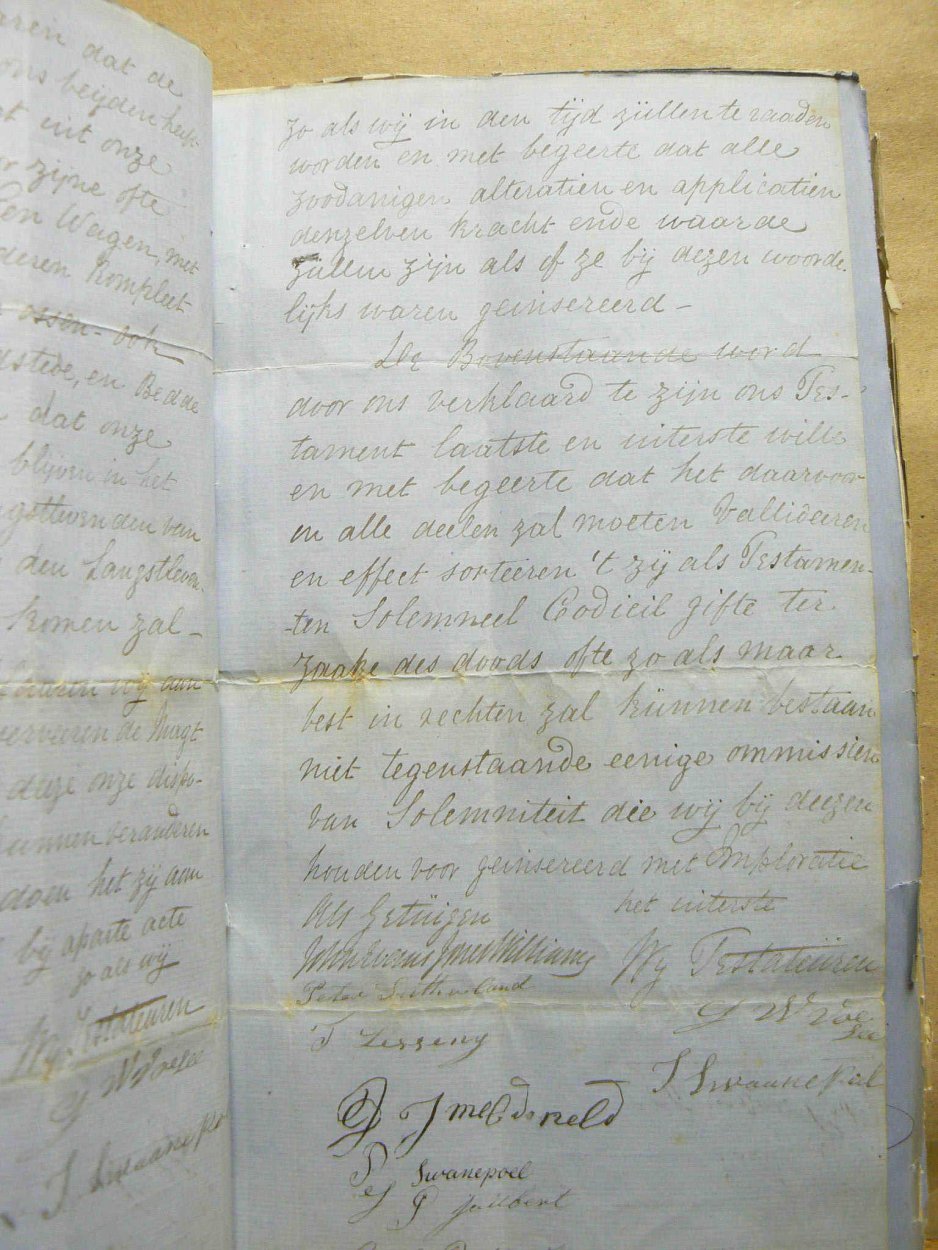 aren dat de
ons beijden heeft
uit onze
zijne ofte
Een Wagen, met
deren Kompleet
ossen - ook
dstede, en Bedde
dat onze
blijven in het
van
den Langstleven-
komen zal -
wij aan
de Magt
deeze onze dispo-
kunnen veranderen
doen het zij aan
bij aparte acte
zo als wij
Wij Testateuren
J Swaanepo
zo als wij in den tijd züllen te raaden
worden en met begeerte dat alle
zoodanigen alteratien en applicatien
denzelven kracht ende waarde
zullen zijn als of ze bij dezen woorde
lijks waren geinsereerd -
De Bovenstaande word
door ons verklaard te zijn ons Tes-
tament laatste en uiterste wille
en met begeerte dat het daarvoor
in alle deelen zal moeten Vallideeren
en effect sorteeren 't zij als Testamen-
ten Solemneel Codicil gifte ter
zaake des doods ofte zo als maar
best in rechten zal künnen bestaan
niet tegenstaande eenige ommissien
van Solemniteit die wij bij deezen
houden voor geinsereerd met Imploratie
het uiterste
Als Getüigen
John Evans Jones Williams
Wij Testateüren
Peter Sutherland
W
J Lessing
J Swaanepoel
J
Swanepoel
P